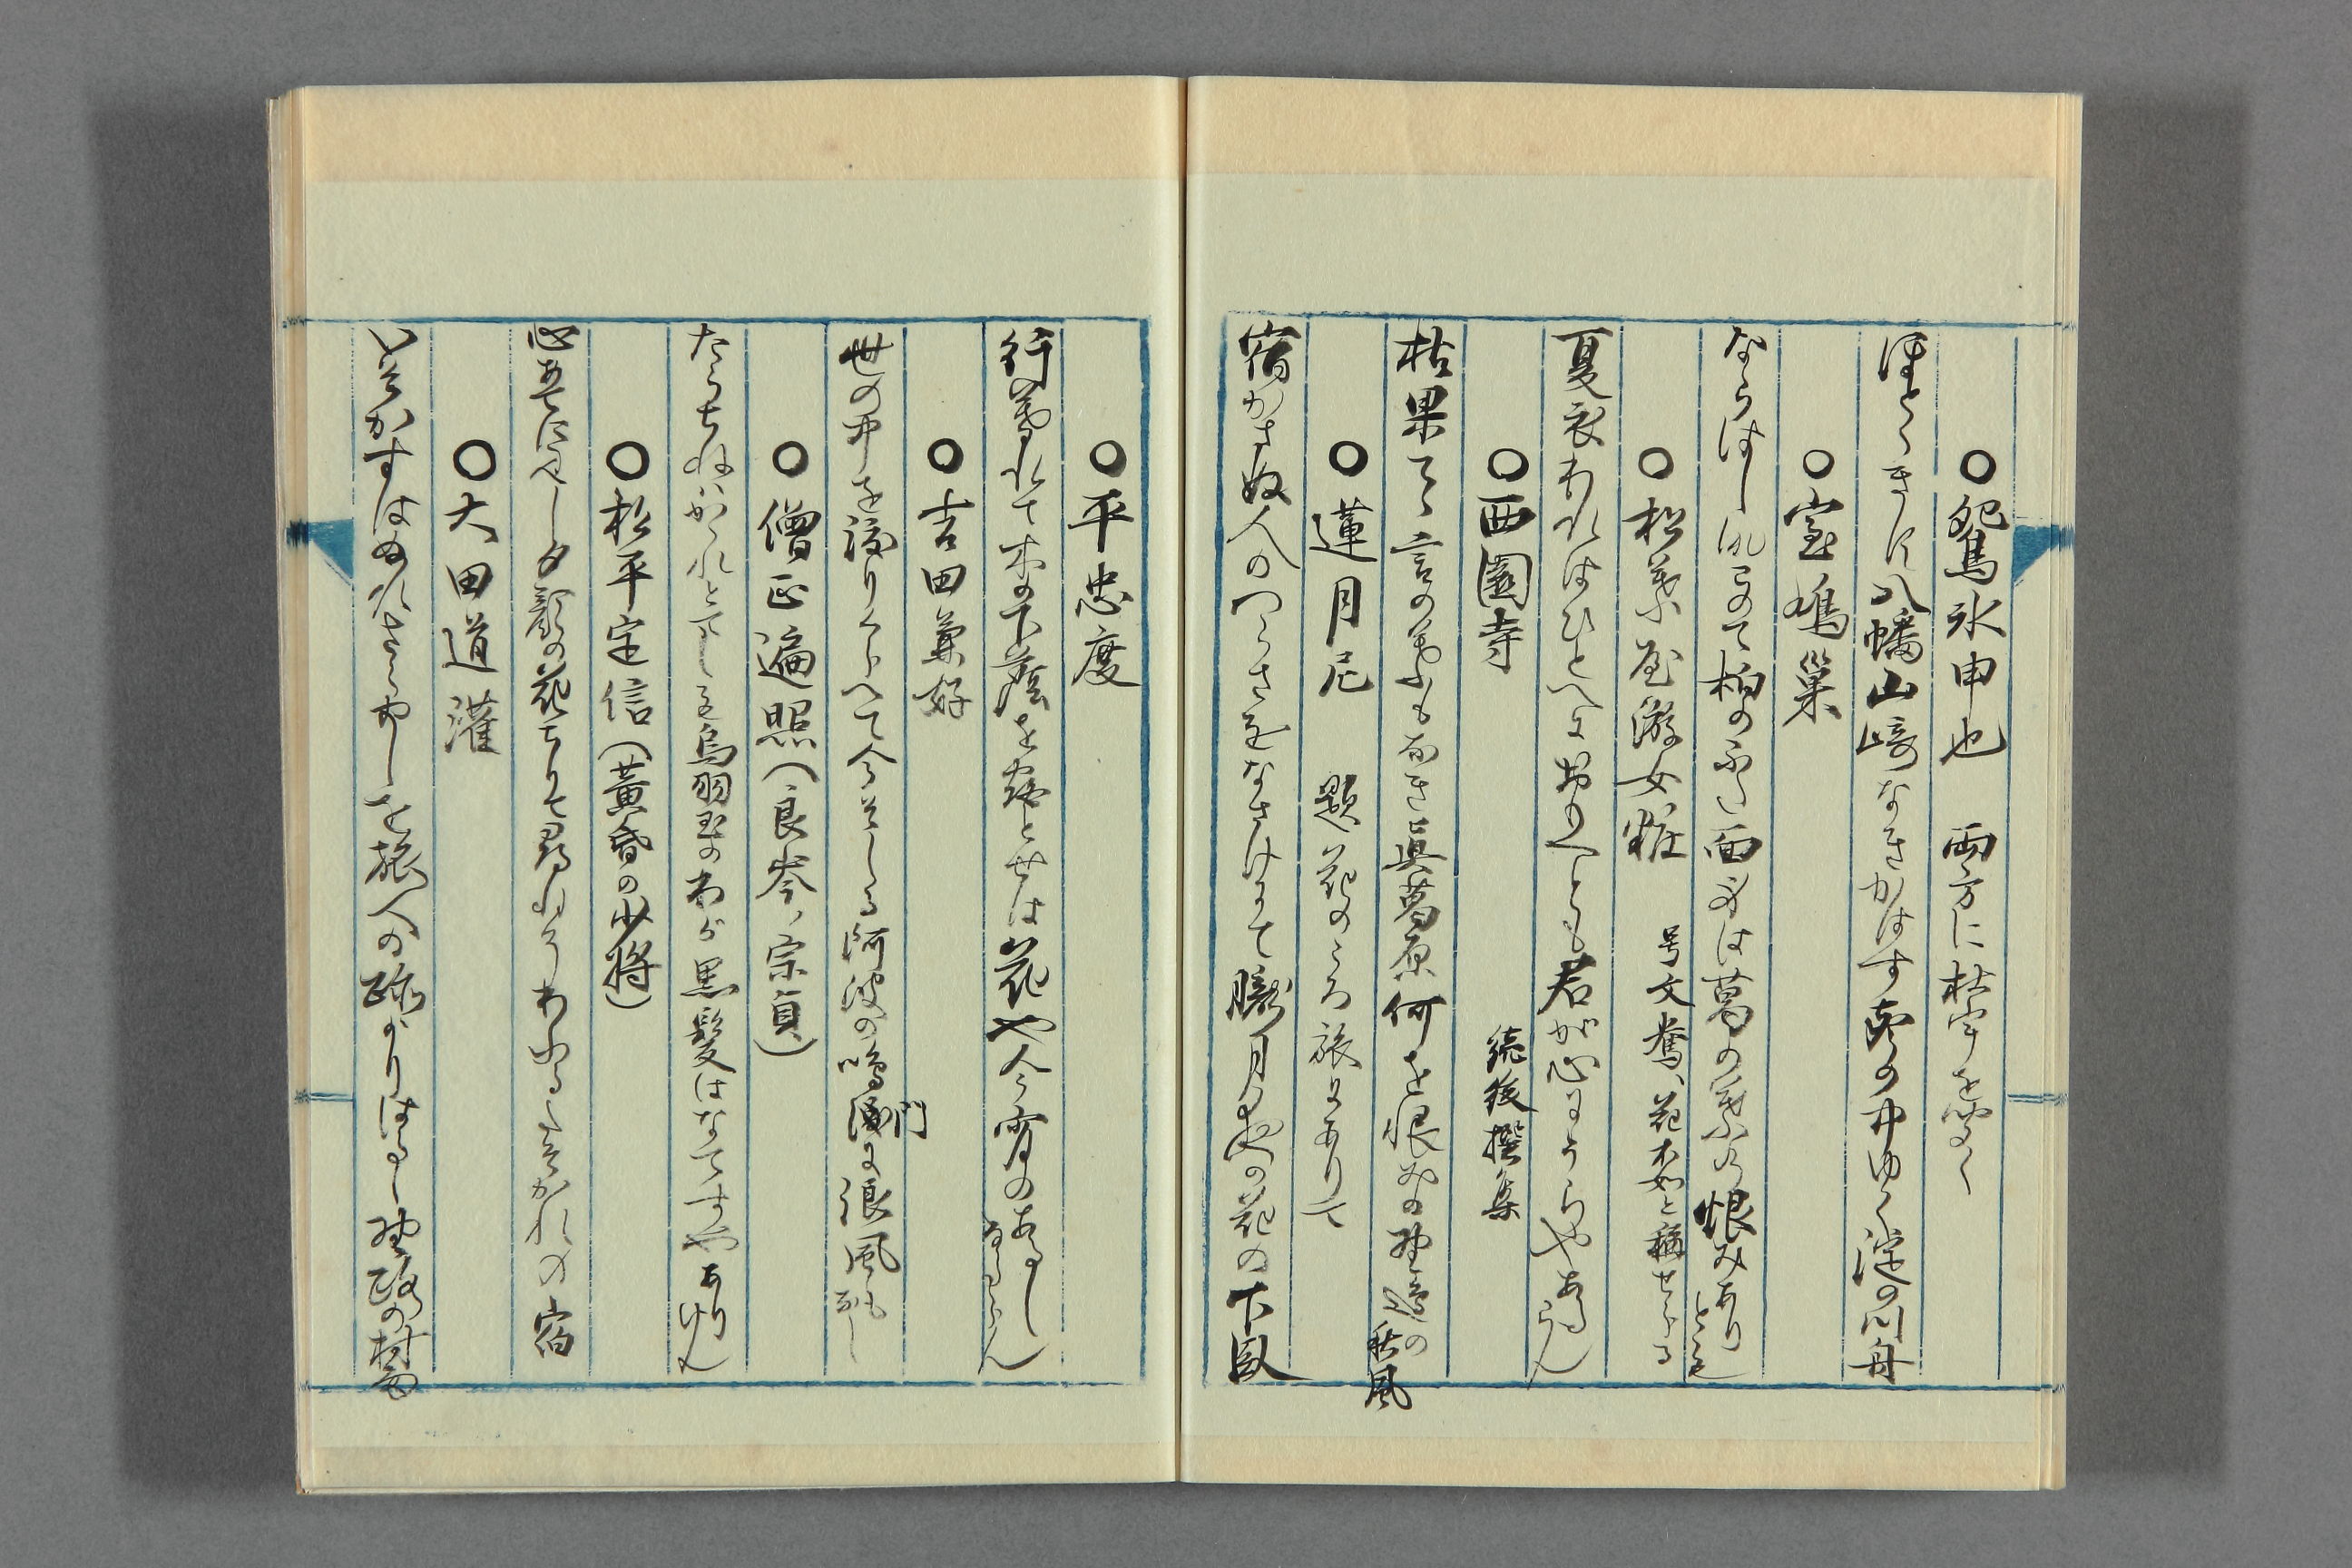 ○鴛氷申也　両方に杜宇を聞く
ほとゝきす八幡山崎なきかはす声の中ゆく淀の川舟
○室鳩巣
ならはし て柏のふた面身は葛の葉の恨みありとも
○松葉屋游女粧　号文鴦、花不如と稱せらる
夏衣われはひとへにおもへとも君が心にうらやあるらん
○西園寺　続後撰集
枯果てゝ言の葉もなき真葛原何を恨みの野邊の秋風
○蓮月尼　題花のころ旅にありて
宿かさぬ人のつらさをなさけにて朧月夜の花の下臥
○平忠度
行暮れて木の下蔭を宿とせは花や今宵のあるしなるらん
○吉田兼好
世の中を渡りくらへて今そしる阿波の鳴渡門に浪風もなし
○僧正遍照（良岑ノ宗貞）
たらちねはかゝれとてしも烏羽玉のわが黒髪はなてすやありけん
○松平定信（黄昏の少将）
心あてに見し夕顔の花ちりて尋ねそわふるたそかれの宿
○大田道灌
いそかすはぬれさらましを旅人の跡よりはるゝ野路の村雨